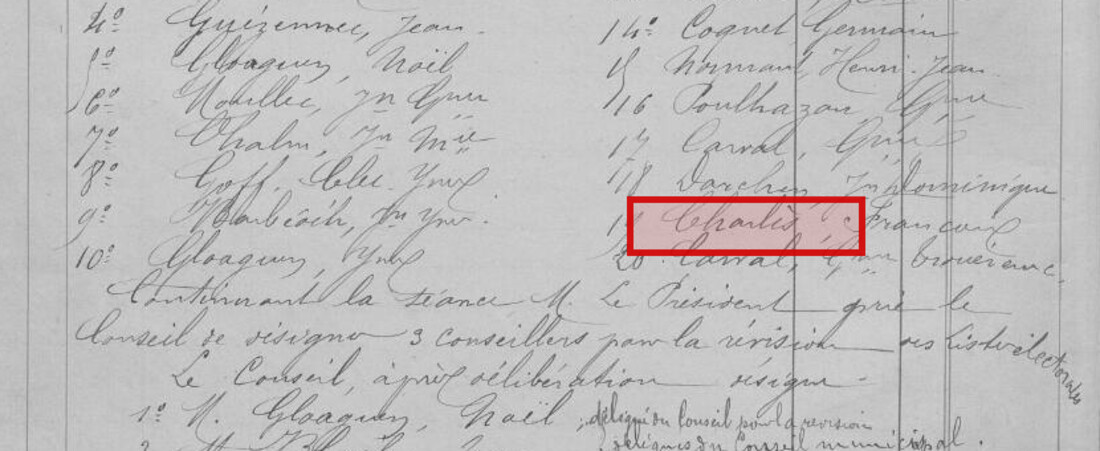 4º Guézennec, Jean.
5º Gloaguen, Noël
6º Noullec, Jn Guu
7º Chalm, Jn Mie
8º Goff, Clec. Yves
9º Jn Yves.
10º Gloaguen, Yves
14º Coquet Germain
15 Normant, Henri-Jean
16 Poulhazan,
17 Carval,
18 Darchen, Jn Dominique
19 Charlès, François
20. Carval,
Continuant la séance M. Le Président prie le
Conseil de désigner 3 conseillers pour la révision des listes électorales
Le Conseil, après délibération désigne
1º M. Gloaguen, Noël ; délégué du Conseil pour la revision
délégués du Conseil municipal.